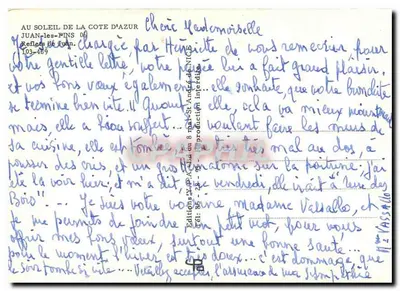 AU SOLEIL DE LA COTE D'AZUR
JUAN-les-PINS
103-689
Chère Mademoiselle
chargée par Henriette de vous remercier pour
votre gentille lettre, votre pensée lui a fait grand plaisir,
et vos vœux également. elle souhaite, que votre bronchite
se termine bien vite. Quant à elle, cela va mieux maintenant
mais, elle a beaucoup voulant laver les murs de
sa cuisine, elle est tombée mal au dos, à
pousser des cris, et un gros sur la poitrine. j'ai
été la voir hier, et m'a dit, que vendredi, elle irait à "rue des
Bois" Je suis votre voisine, madame Vassallo, et
je me permets de joindre un petit mot, pour vous
offrir mes bons vœux, surtout une bonne santé...
pour le moment l'hiver est très doux. c'est dommage, que
le soir tombe si vite... Veuillez accepter, l'assurance de ma sympathie
Mme VASSALLO